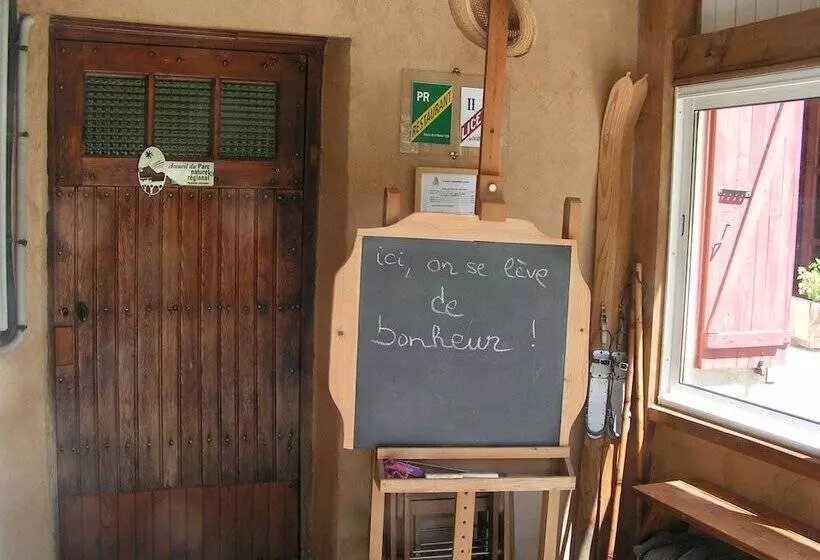 PR
RESTAURANT
II
LICE
Accueil du Parc
naturel
régional
ici, on se lève
de
bonheur !